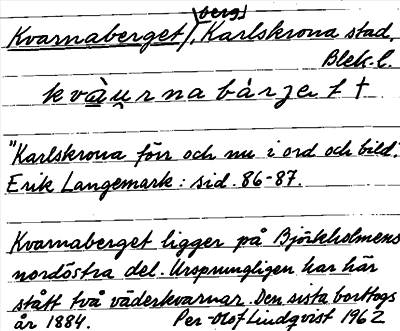 Kvarnaberget, \berg/ Karlskrona stad,
Blek. l.
kvàu̯rnabàrjet †
"Karlskrona förr och nu i ord och bild".
Erik Langemark: sid. 86-87.
Kvarnaberget ligger på Björkholmens
nordöstra del. Ursprungligen har här
stått två väderkvarnar. Den sista borttogs
år 1884. Per-Olof Lindqvist 1962